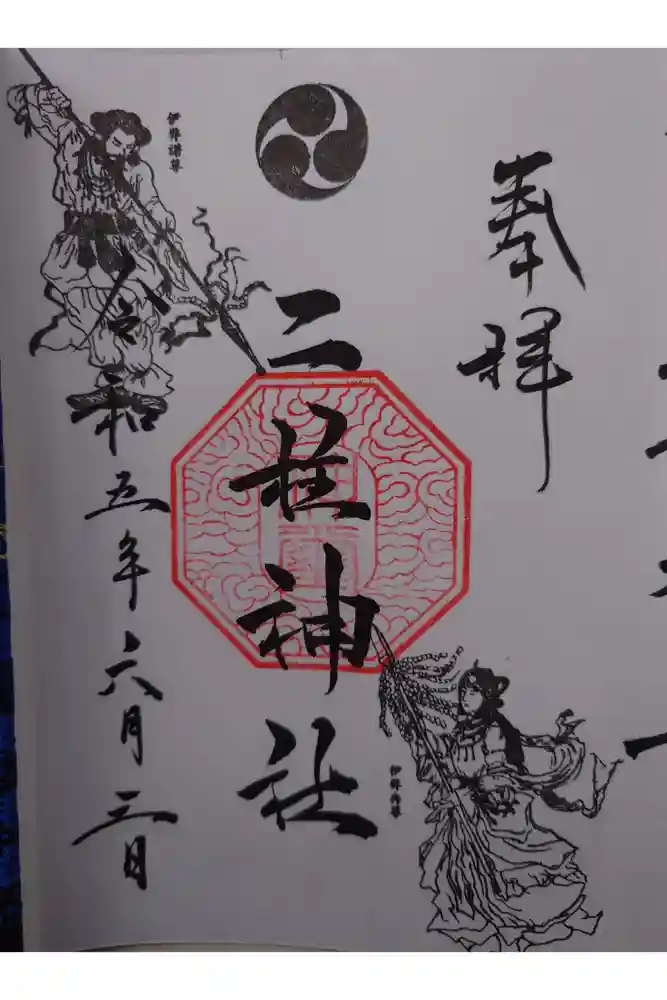 奉拝
二柱神社
伊弉諾尊
伊弉冉尊
令和五年六月三日